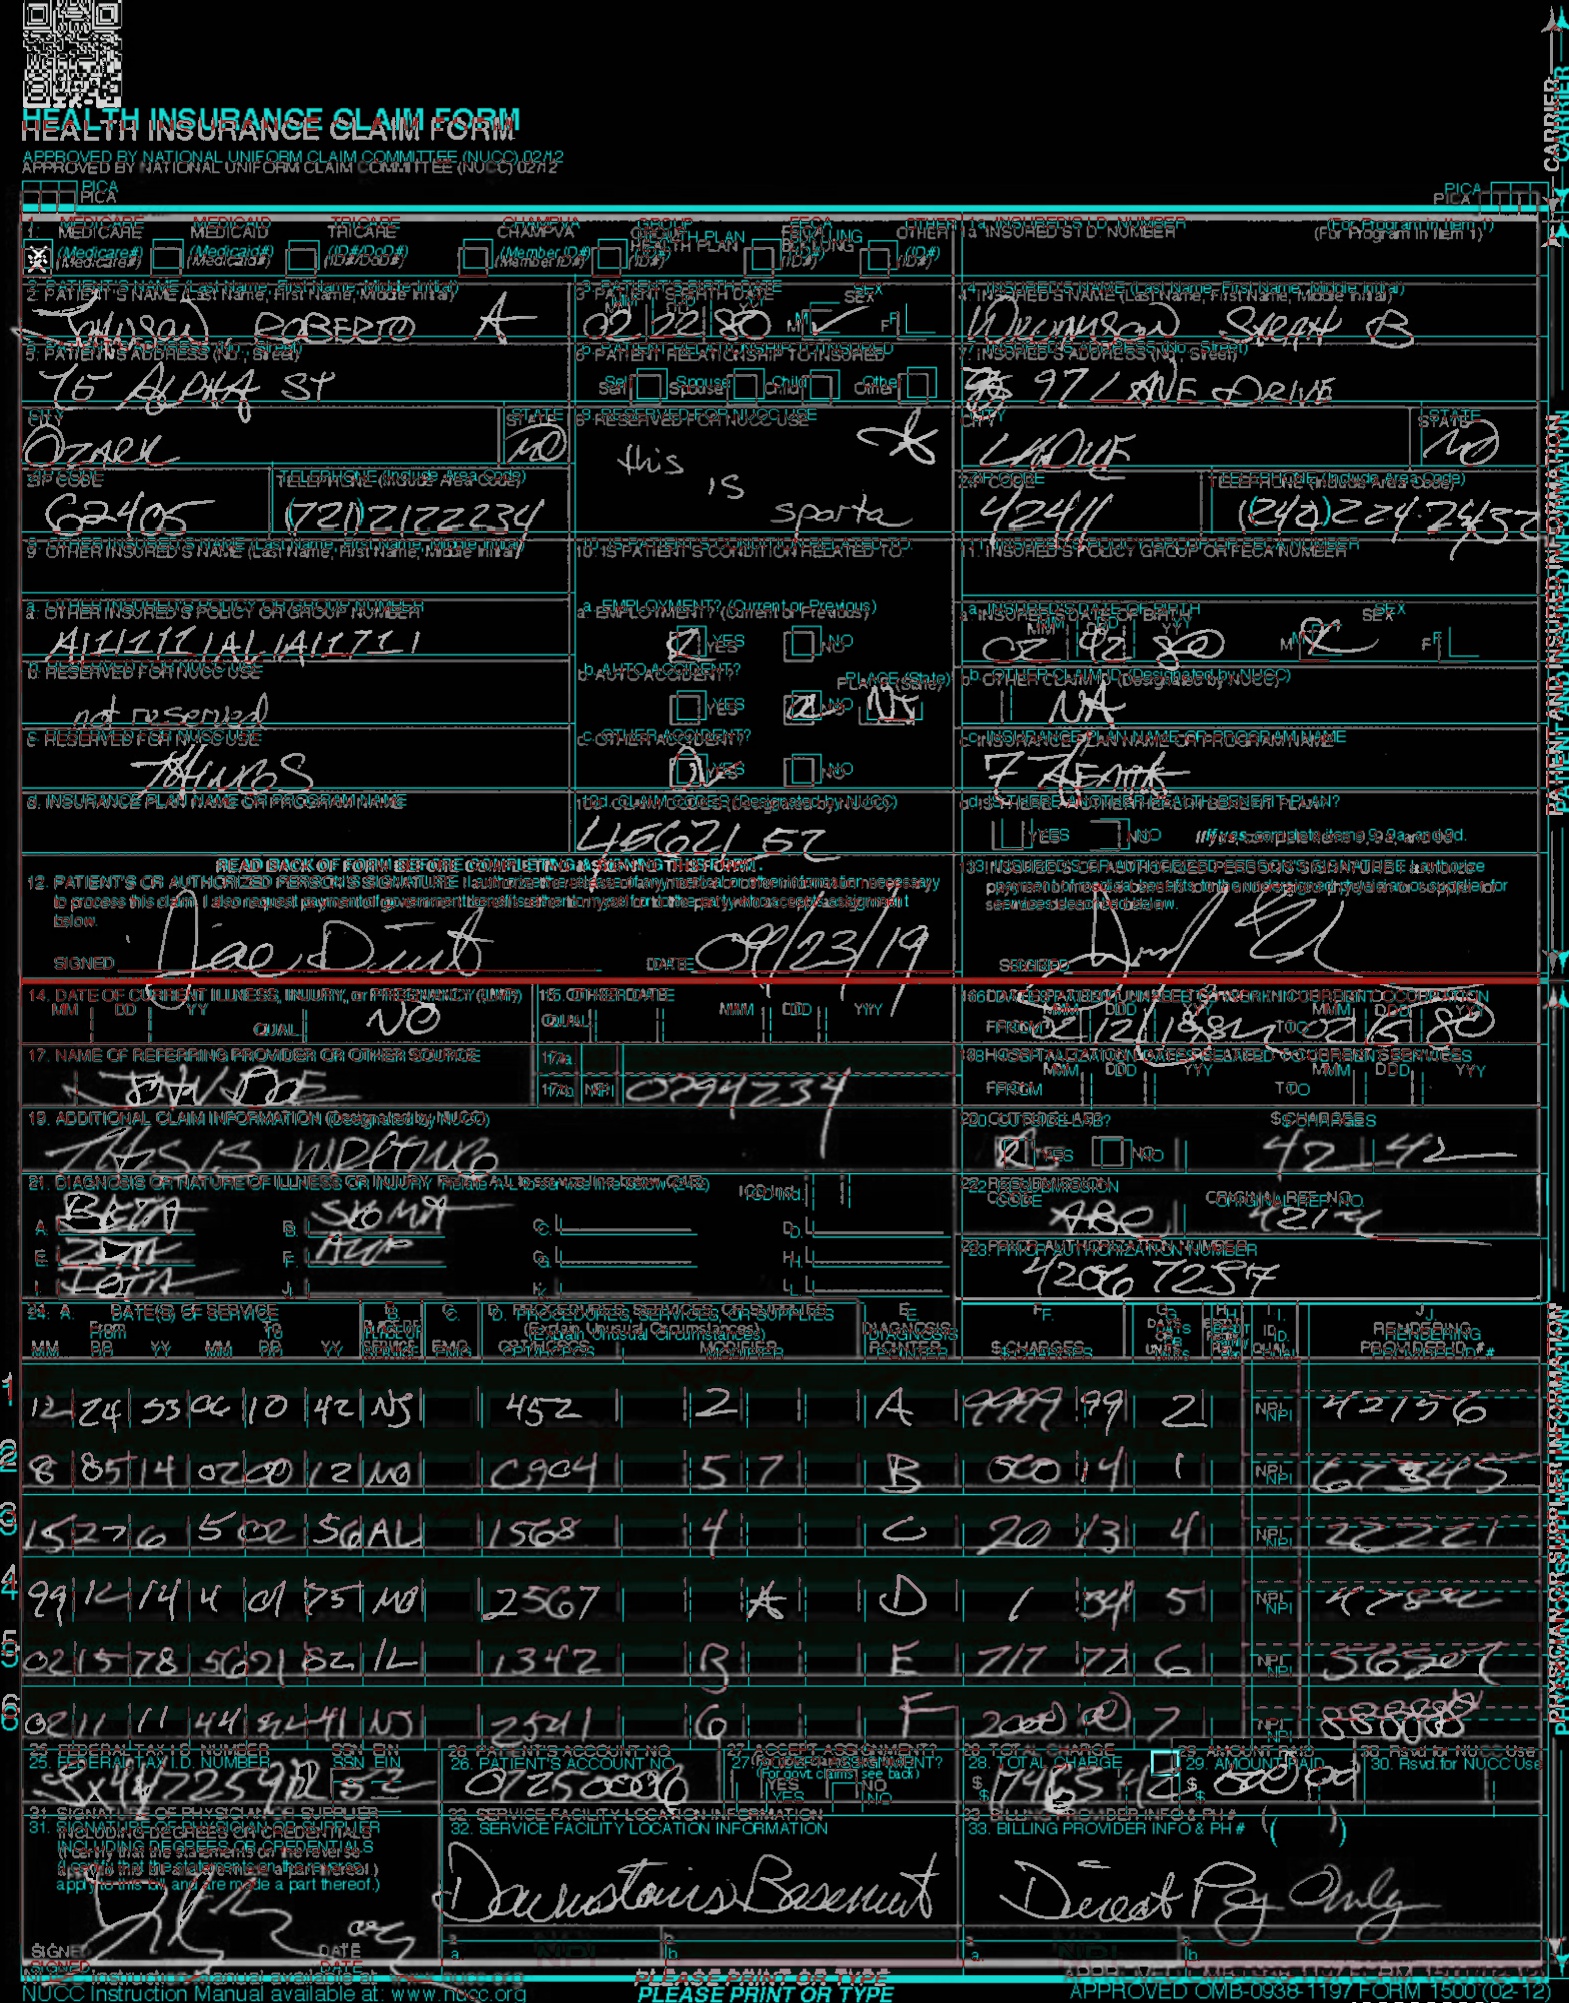 HEALTH INSURANCE CLAIM FORM
APPROVED BY NATIONAL UNIFORM CLAIM COMMITTEE (NUCC) 02/12
PICA
PICA
CARRIER
1. MEDICARE MEDICAID TRICARE CHAMPVA GROUP HEALTH PLAN FECA BLK LUNG OTHER
(Medicare#) (Medicaid#) (ID#/DoD#) (Member ID#) (ID#) (ID#) (ID#)
1a. INSURED'S I.D. NUMBER (For Program in Item 1)
2. PATIENT'S NAME (Last Name, First Name, Middle Initial)
JOHNSON ROBERTO A
3. PATIENT'S BIRTH DATE SEX
MM DD YY
02 22 80 M F
4. INSURED'S NAME (Last Name, First Name, Middle Initial)
SARAH B
5. PATIENT'S ADDRESS (No., Street)
75 ALPHA ST
6. PATIENT RELATIONSHIP TO INSURED
Self Spouse Child Other
7. INSURED'S ADDRESS (No., Street)
97 LANE DRIVE
CITY STATE
OZARK MO
8. RESERVED FOR NUCC USE
this
is
sporta
CITY STATE
LADUE MO
ZIP CODE TELEPHONE (Include Area Code)
62405 (721)2122234
ZIP CODE TELEPHONE (Include Area Code)
42411
9. OTHER INSURED'S NAME (Last Name, First Name, Middle Initial)
10. IS PATIENT'S CONDITION RELATED TO:
11. INSURED'S POLICY GROUP OR FECA NUMBER
a. OTHER INSURED'S POLICY OR GROUP NUMBER
a. EMPLOYMENT? (Current or Previous)
YES NO
a. INSURED'S DATE OF BIRTH SEX
MM DD YY
02 92 80 M F
b. RESERVED FOR NUCC USE
not reserved
b. AUTO ACCIDENT? PLACE (State)
YES NO NJ
b. OTHER CLAIM ID (Designated by NUCC)
NA
c. RESERVED FOR NUCC USE
THINGS
c. OTHER ACCIDENT?
YES NO
c. INSURANCE PLAN NAME OR PROGRAM NAME
d. INSURANCE PLAN NAME OR PROGRAM NAME
10d. CLAIM CODES (Designated by NUCC)
45621 52
d. IS THERE ANOTHER HEALTH BENEFIT PLAN?
YES NO If yes, complete items 9, 9a, and 9d.
READ BACK OF FORM BEFORE COMPLETING & SIGNING THIS FORM.
12. PATIENT'S OR AUTHORIZED PERSON'S SIGNATURE I authorize the release of any medical or other information necessary
to process this claim. I also request payment of government benefits either to myself or to the party who accepts assignment
below.
SIGNED DATE 09/23/19
13. INSURED'S OR AUTHORIZED PERSON'S SIGNATURE I authorize
payment of medical benefits to the undersigned physician or supplier for
services described below.
SIGNED
PATIENT AND INSURED INFORMATION
14. DATE OF CURRENT ILLNESS, INJURY, or PREGNANCY (LMP)
MM DD YY
QUAL. NO
15. OTHER DATE
QUAL. MM DD YY
16. DATES PATIENT UNABLE TO WORK IN CURRENT OCCUPATION
MM DD YY MM DD YY
FROM TO
17. NAME OF REFERRING PROVIDER OR OTHER SOURCE
17a.
17b. NPI 0794234
18. HOSPITALIZATION DATES RELATED TO CURRENT SERVICES
MM DD YY MM DD YY
FROM TO
19. ADDITIONAL CLAIM INFORMATION (Designated by NUCC)
THIS IS WRITING
20. OUTSIDE LAB? $ CHARGES
YES NO 42 42
21. DIAGNOSIS OR NATURE OF ILLNESS OR INJURY Relate A-L to service line below (24E) ICD Ind.
A. BETA B. SIGMA C. D.
E. ZETA F. G. H.
I. IOTA J. K. L.
22. RESUBMISSION CODE ORIGINAL REF. NO.
ABC
23. PRIOR AUTHORIZATION NUMBER
4206 7257
24. A. DATE(S) OF SERVICE B. C. D. PROCEDURES, SERVICES, OR SUPPLIES E. F. G. H. I. J.
From To PLACE OF SERVICE EMG (Explain Unusual Circumstances) DIAGNOSIS POINTER $ CHARGES DAYS OR UNITS ID. QUAL. RENDERING PROVIDER ID. #
MM DD YY MM DD YY CPT/HCPCS MODIFIER
1 12 24 53 06 10 42 NJ 452 2 A 9999 99 2 NPI 42156
2 8 85 14 02 00 12 MO C904 5 7 B 000 14 1 NPI 67845
3 15 27 6 5 02 56 AL 1568 4 C 20 13 4 NPI 22221
4 99 12 14 4 01 75 MO 2567 A D 1 34 5 NPI
5 02 15 78 56 21 82 IL 1342 B E 717 72 6 NPI
6 02 11 11 44 41 NJ 2541 6 F 2000 00 7 NPI
25. FEDERAL TAX I.D. NUMBER SSN EIN
26. PATIENT'S ACCOUNT NO.
07250006
27. ACCEPT ASSIGNMENT?
(For govt. claims, see back)
YES NO
28. TOTAL CHARGE
$
29. AMOUNT PAID
$
30. Rsvd for NUCC Use
31. SIGNATURE OF PHYSICIAN OR SUPPLIER
INCLUDING DEGREES OR CREDENTIALS
(I certify that the statements on the reverse
apply to this bill and are made a part thereof.)
SIGNED DATE
32. SERVICE FACILITY LOCATION INFORMATION
Downstairs Basement
a. b.
33. BILLING PROVIDER INFO & PH # ( )
Direct Pay Only
a. b.
PHYSICIAN OR SUPPLIER INFORMATION
NUCC Instruction Manual available at: www.nucc.org
PLEASE PRINT OR TYPE
APPROVED OMB-0938-1197 FORM 1500 (02-12)